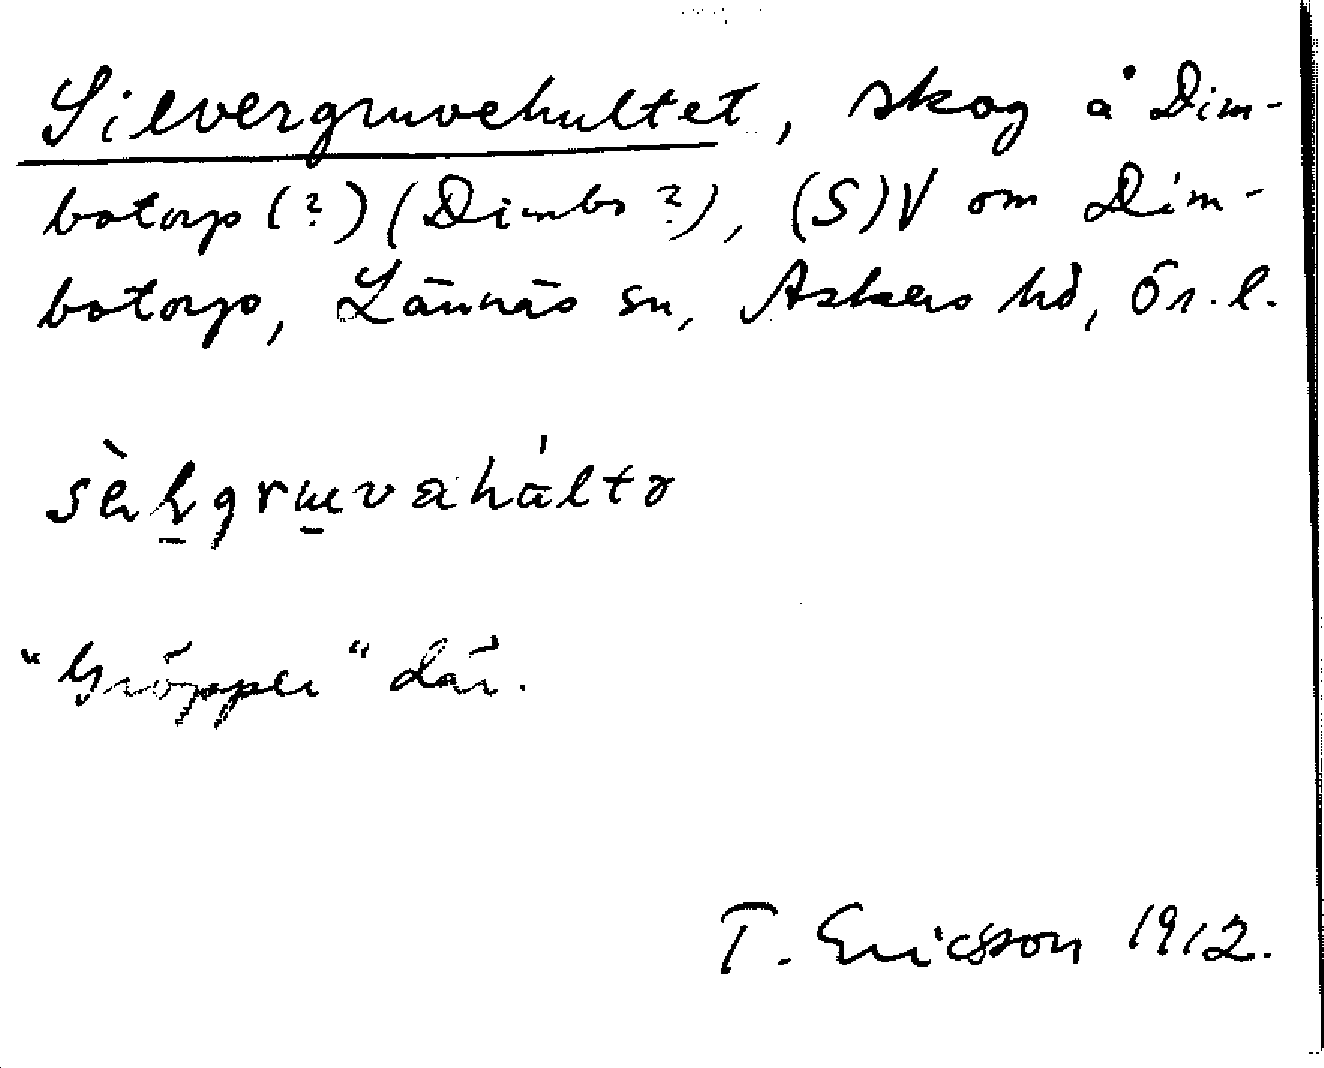 Silvergruvehultet, skog å Dim-
botorp (?) (Dimbo ?), (S)V om Dim-
botorp, Lännäs sn, Askers hd, Ör. l.
"Gröpper" där.
T. Ericsson 1912.